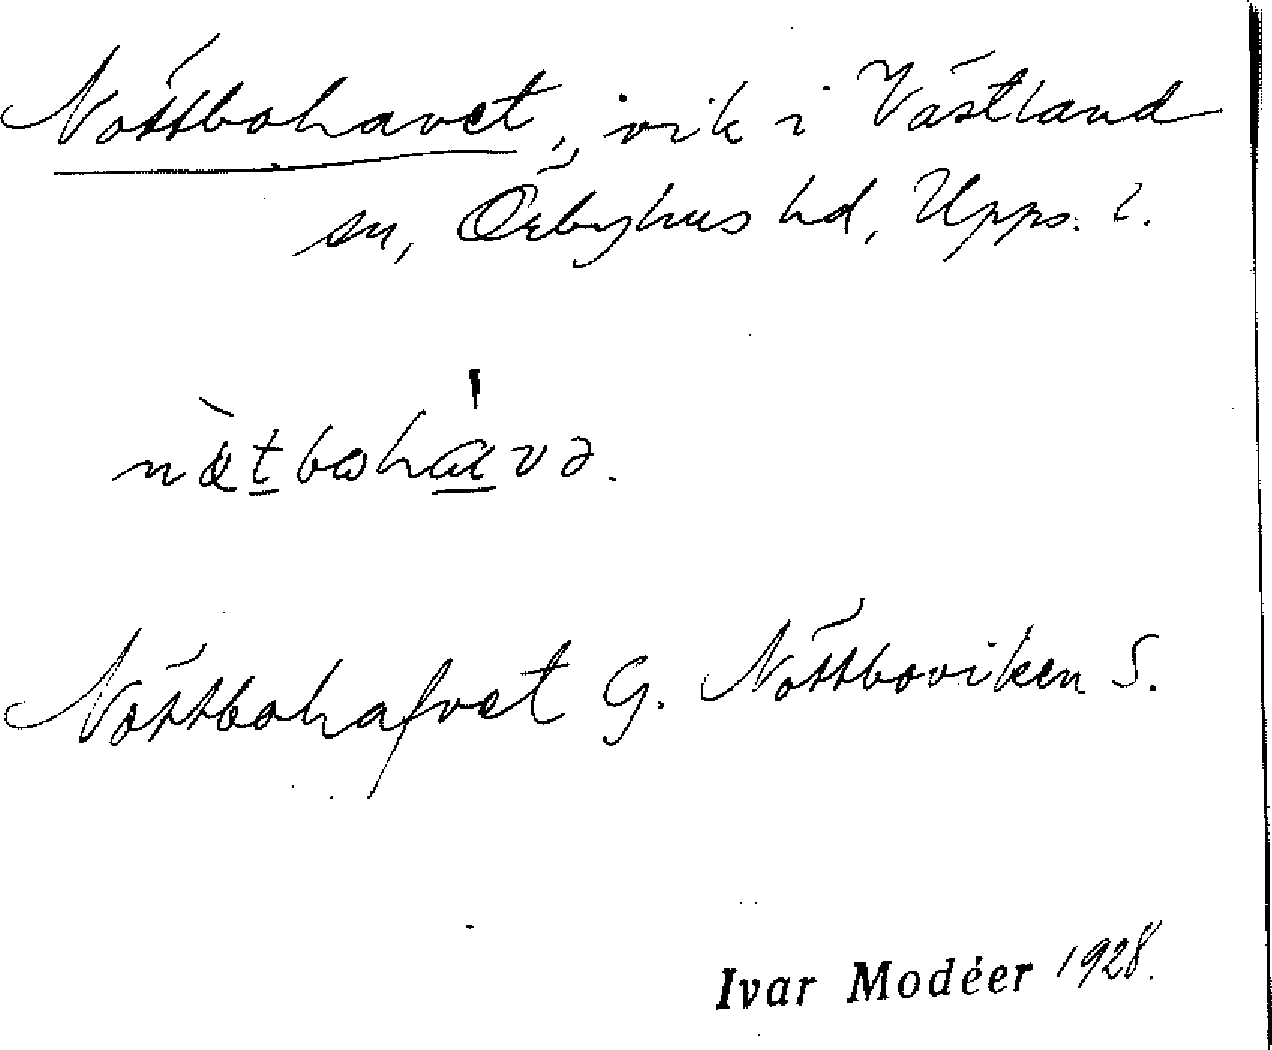 Nöttbohavet, vik i Västland
sn, Örbyhus hd, Upps. l.
Nöttbohafvet G. Nöttboviken S.
Ivar Modéer 1928.